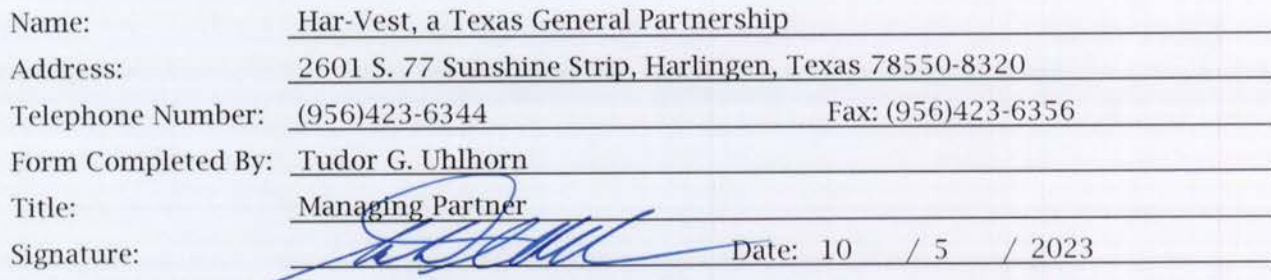 Name: Har-Vest, a Texas General Partnership
Address: 2601 S. 77 Sunshine Strip, Harlingen, Texas 78550-8320
Telephone Number: (956)423-6344 Fax: (956)423-6356
Form Completed By: Tudor G. Uhlhorn
Title: Managing Partner
Signature: Date: 10 / 5 / 2023